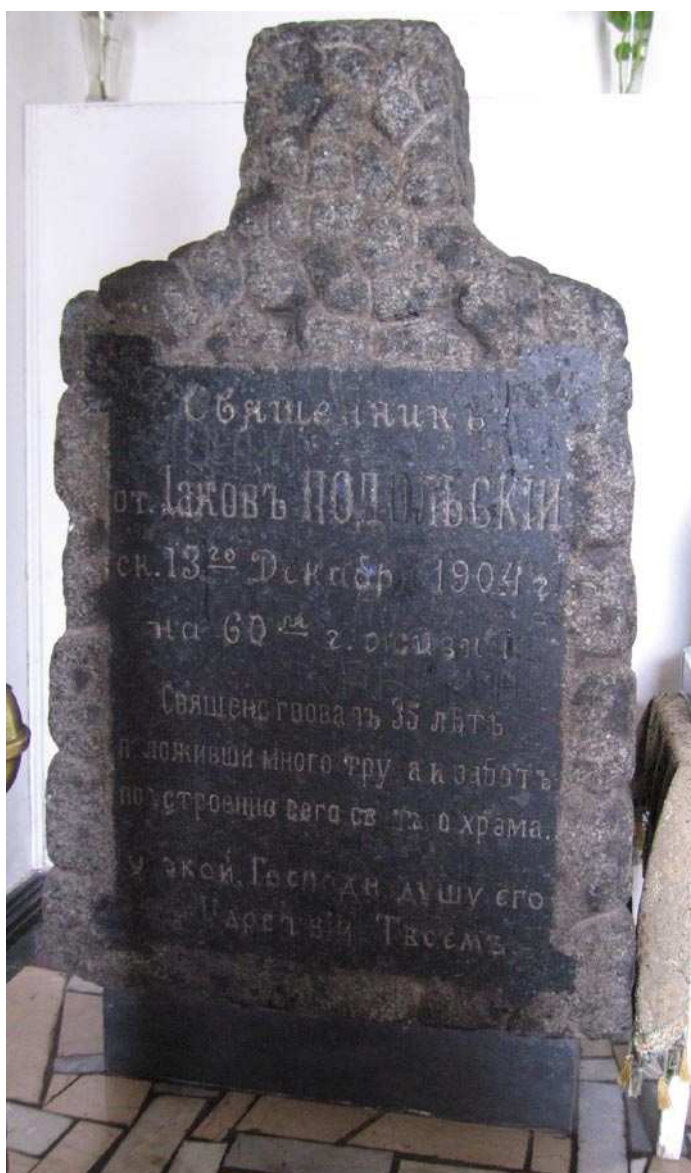 Священникъ
от. Іаковъ ПОДОЛЬСКІЙ
ск. 13го Декабря 1904 г.
на 60м г. жизни
Священствовалъ 35 лѣтъ
положивши много труда и заботъ
по устроенію сего святаго храма..
Упокой, Господи, душу его
Царствіи Твоемъ